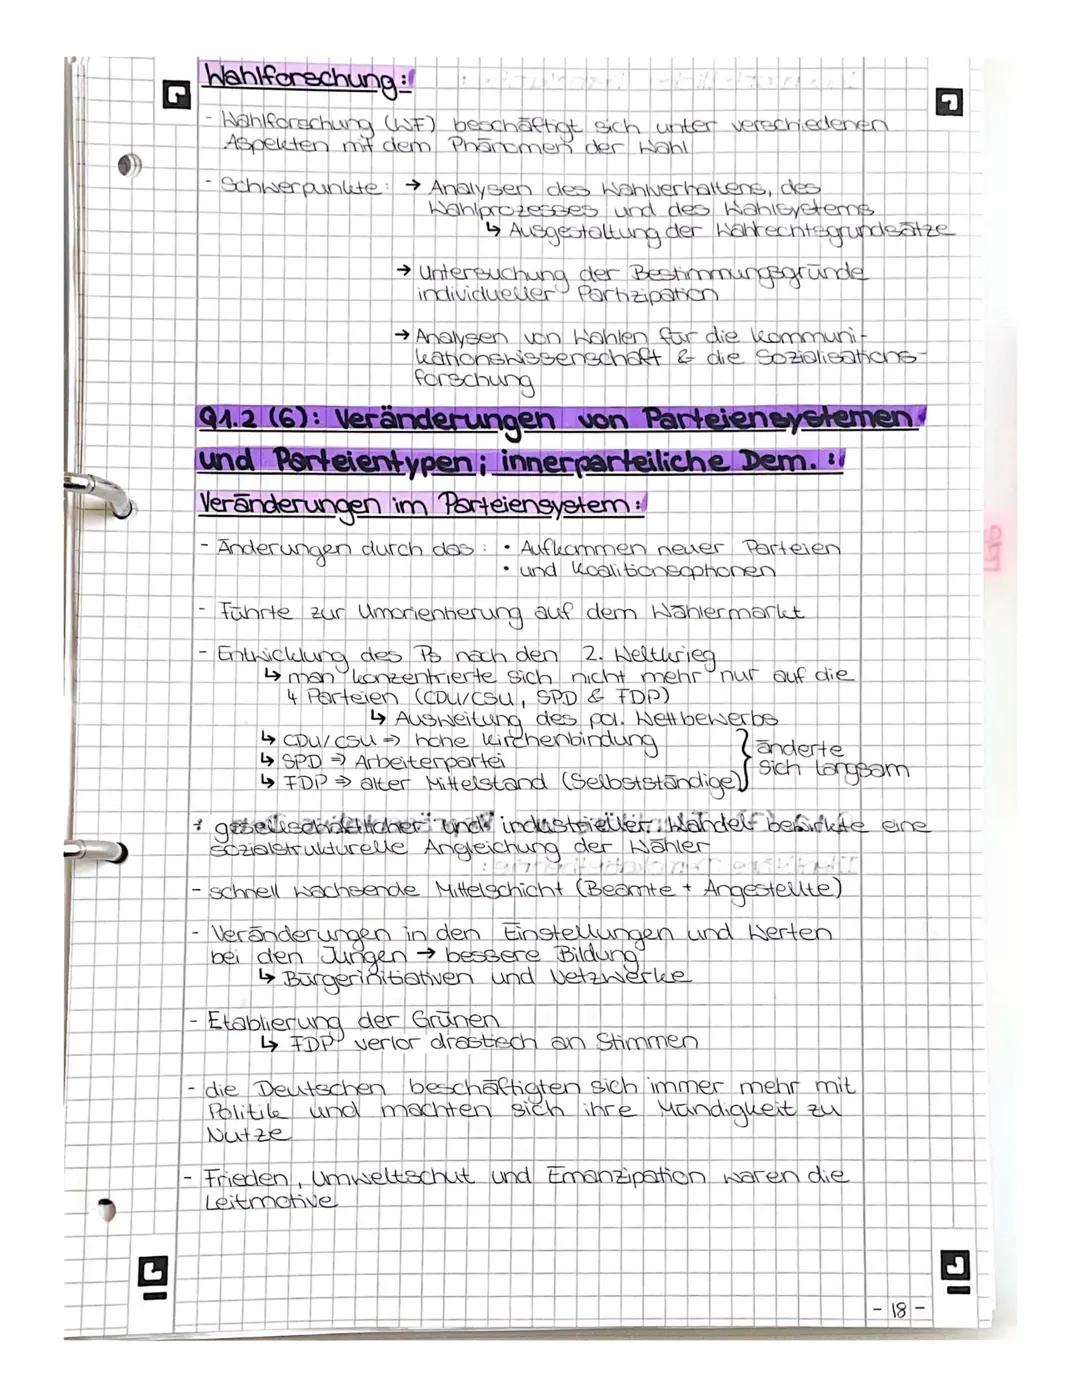 Wahlforschung:
- Wahlforschung (WF) beschäftigt sich unter verschiedenen
Aspekten mit dem Phänomen der Wahl
- Schwerpunkte: → Analysen des Wahlverhaltens, des
Wahlprozesses und des Wahlsystems
↳ Ausgestaltung der Wahlrechtsgrundsätze
→ Untersuchung der Bestimmungsgründe
individueller Partizipation
→ Analysen von Wahlen für die Kommuni-
kationswissenschaft & die Sozialisations-
forschung
Q1.2 (6): Veränderungen von Parteiensystemen
und Parteientypen; innerparteiliche Dem. :
Veränderungen im Parteiensystem:
- Änderungen durch das: • Aufkommen neuer Parteien
• und Koalitionsoptionen
- Führte zur Umorientierung auf dem Wählermarkt
- Entwicklung des PS nach den 2. Weltkrieg
↳ man konzentrierte sich nicht mehr nur auf die
4 Parteien (CDU/CSU, SPD & FDP)
↳ Ausweitung des pol. Wettbewerbs
↳ CDU/CSU ⇒ hohe Kirchenbindung
↳ SPD ⇒ Arbeiterpartei
↳ FDP ⇒ alter Mittelstand (Selbstständige)
änderte
sich langsam
gesellschaftlicher und industrieller Wandel bewirkte eine
sozialstrukturelle Angleichung der Wähler
- schnell wachsende Mittelschicht (Beamte + Angestellte)
- Veränderungen in den Einstellungen und Werten
bei den Jungen → bessere Bildung
↳ Bürgerinitiativen und Netzwerke
- Etablierung der Grünen
↳ FDP verlor drastisch an Stimmen
- die Deutschen beschäftigten sich immer mehr mit
Politik und machten sich ihre Mündigkeit zu
Nutze
- Frieden, Umweltschut und Emanzipation waren die
Leitmotive
- 18 -